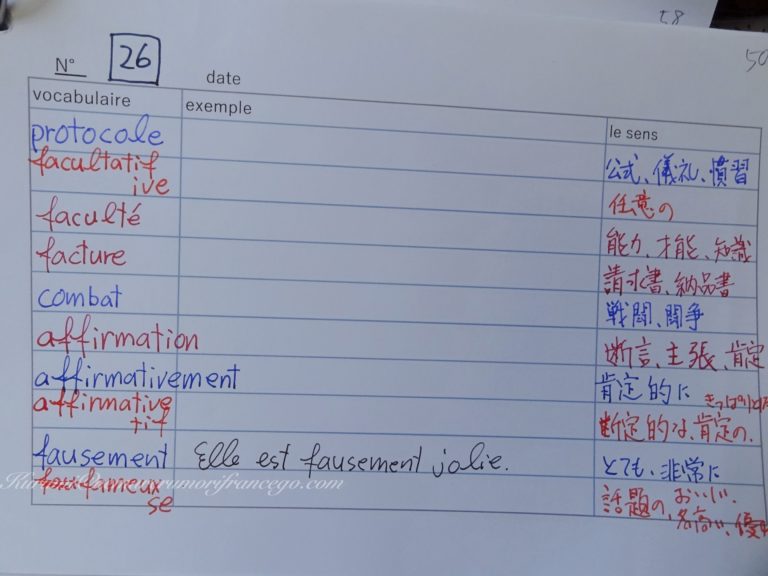 58
50
N° 26 date
vocabulaire exemple le sens
protocale 公式、儀礼、慣習
facultatif
ive 任意の
faculté 能力、才能、知識
facture 請求書、納品書
combat 戦闘、闘争
affirmation 断言、主張、肯定
affirmativement 肯定的に
affirmative
tif 断定的な、肯定の、
fausement Elle est fausement jolie. とても、非常に
fameux
se 話題の、おいしい、
名高い、優